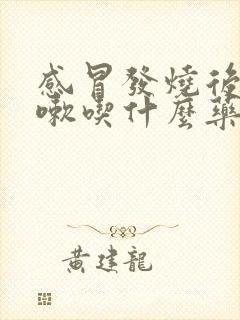 感冒發燒後
嗽喫什麼藥
黃建龍